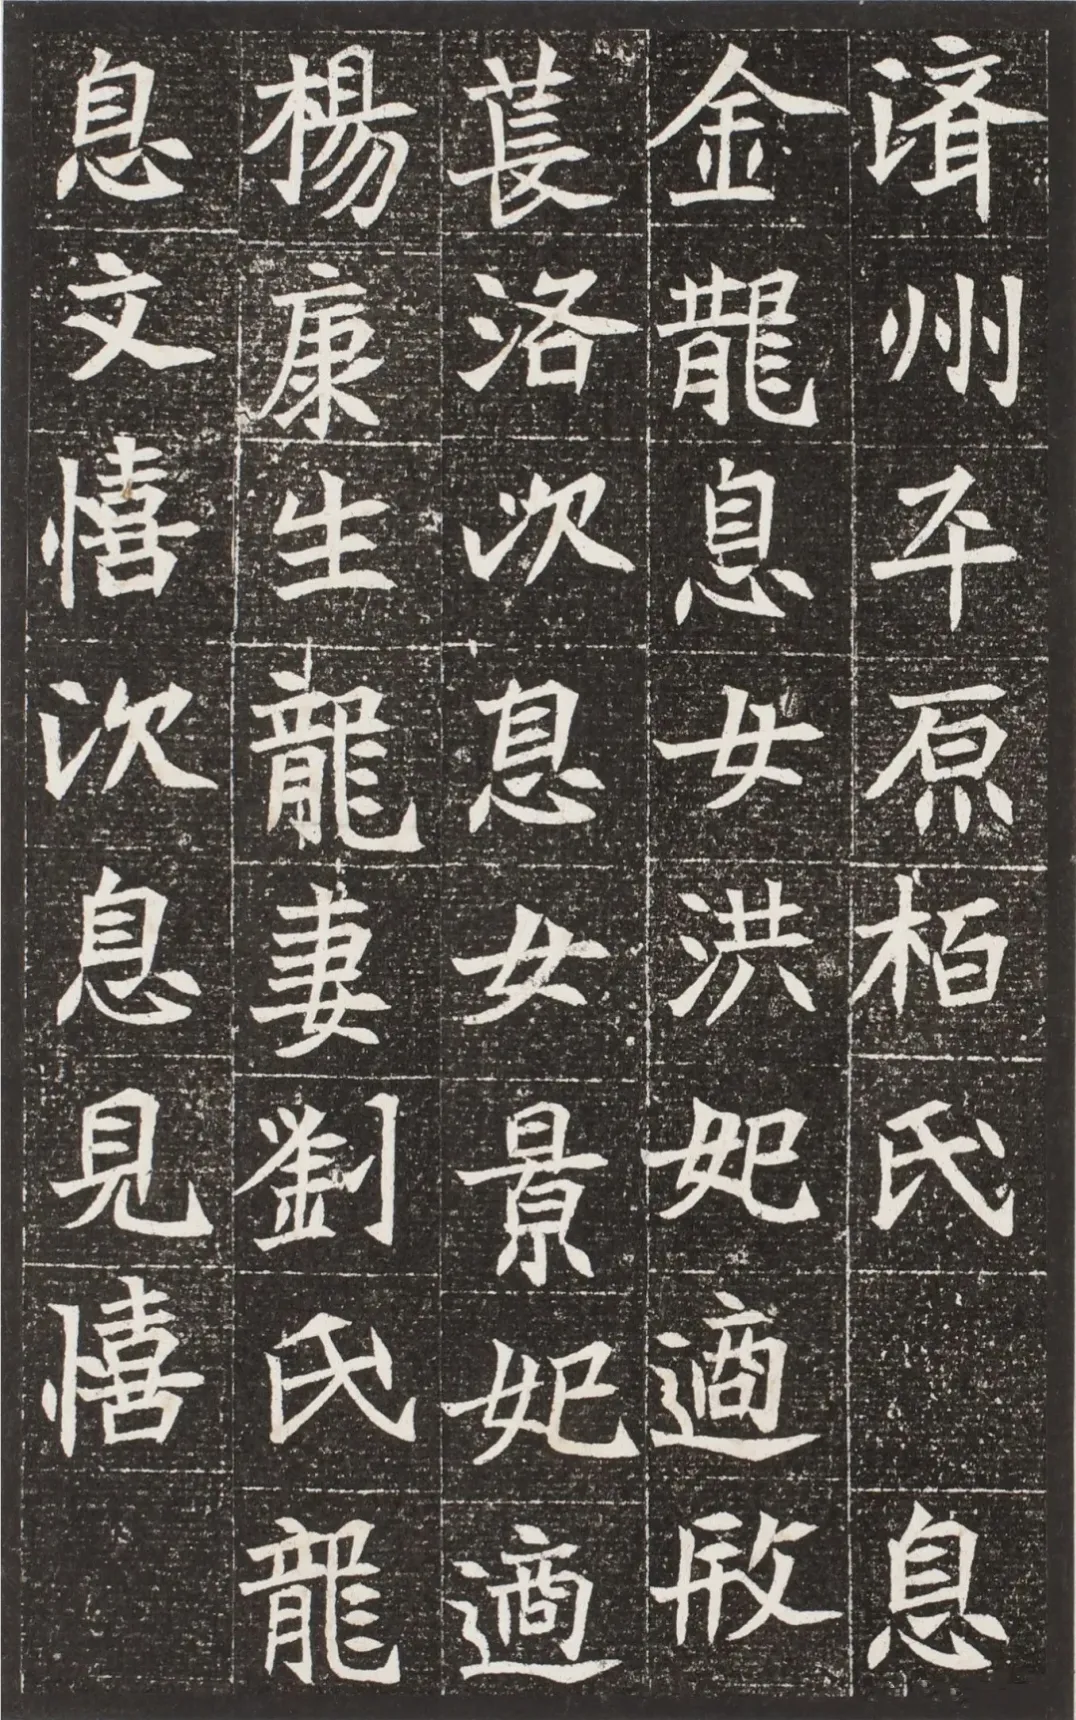 済州平原栢氏　息
金龍息女洪妃適殷
萇洛次息女景妃適
楊康生龍妻劉氏龍
息文憘次息見憘